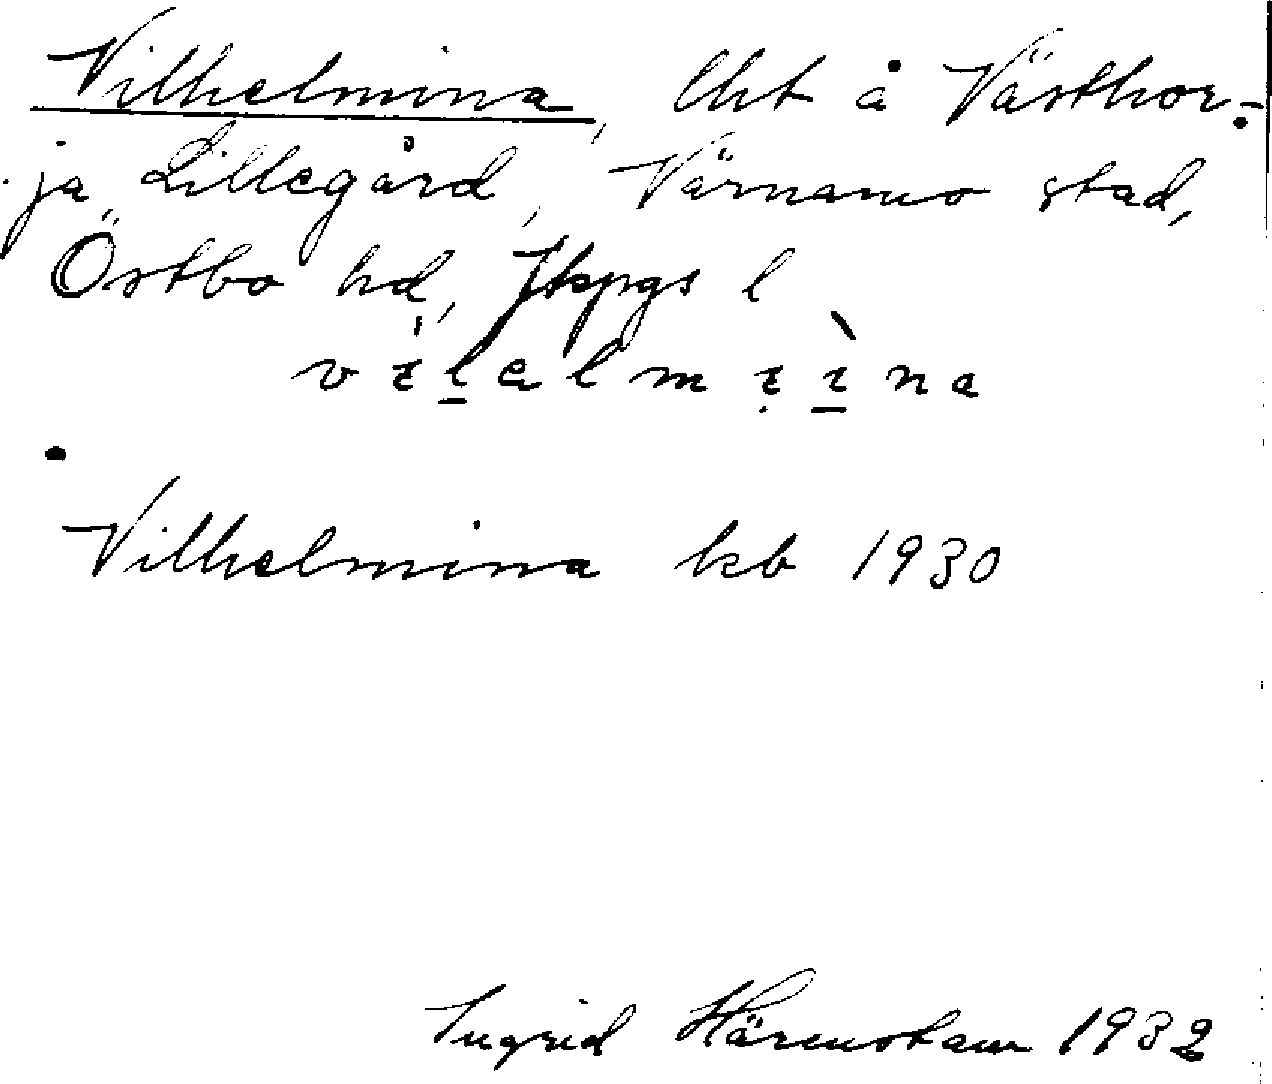 Vilhelmina, lht å Västhor-
ja Lillegård, Värnamo stad,
Östbo hd, Jkpgs l
vɪ̍lelmɪ̣ɪ̀na
Vilhelmina kb 1930
Ingrid Härenstam 1932